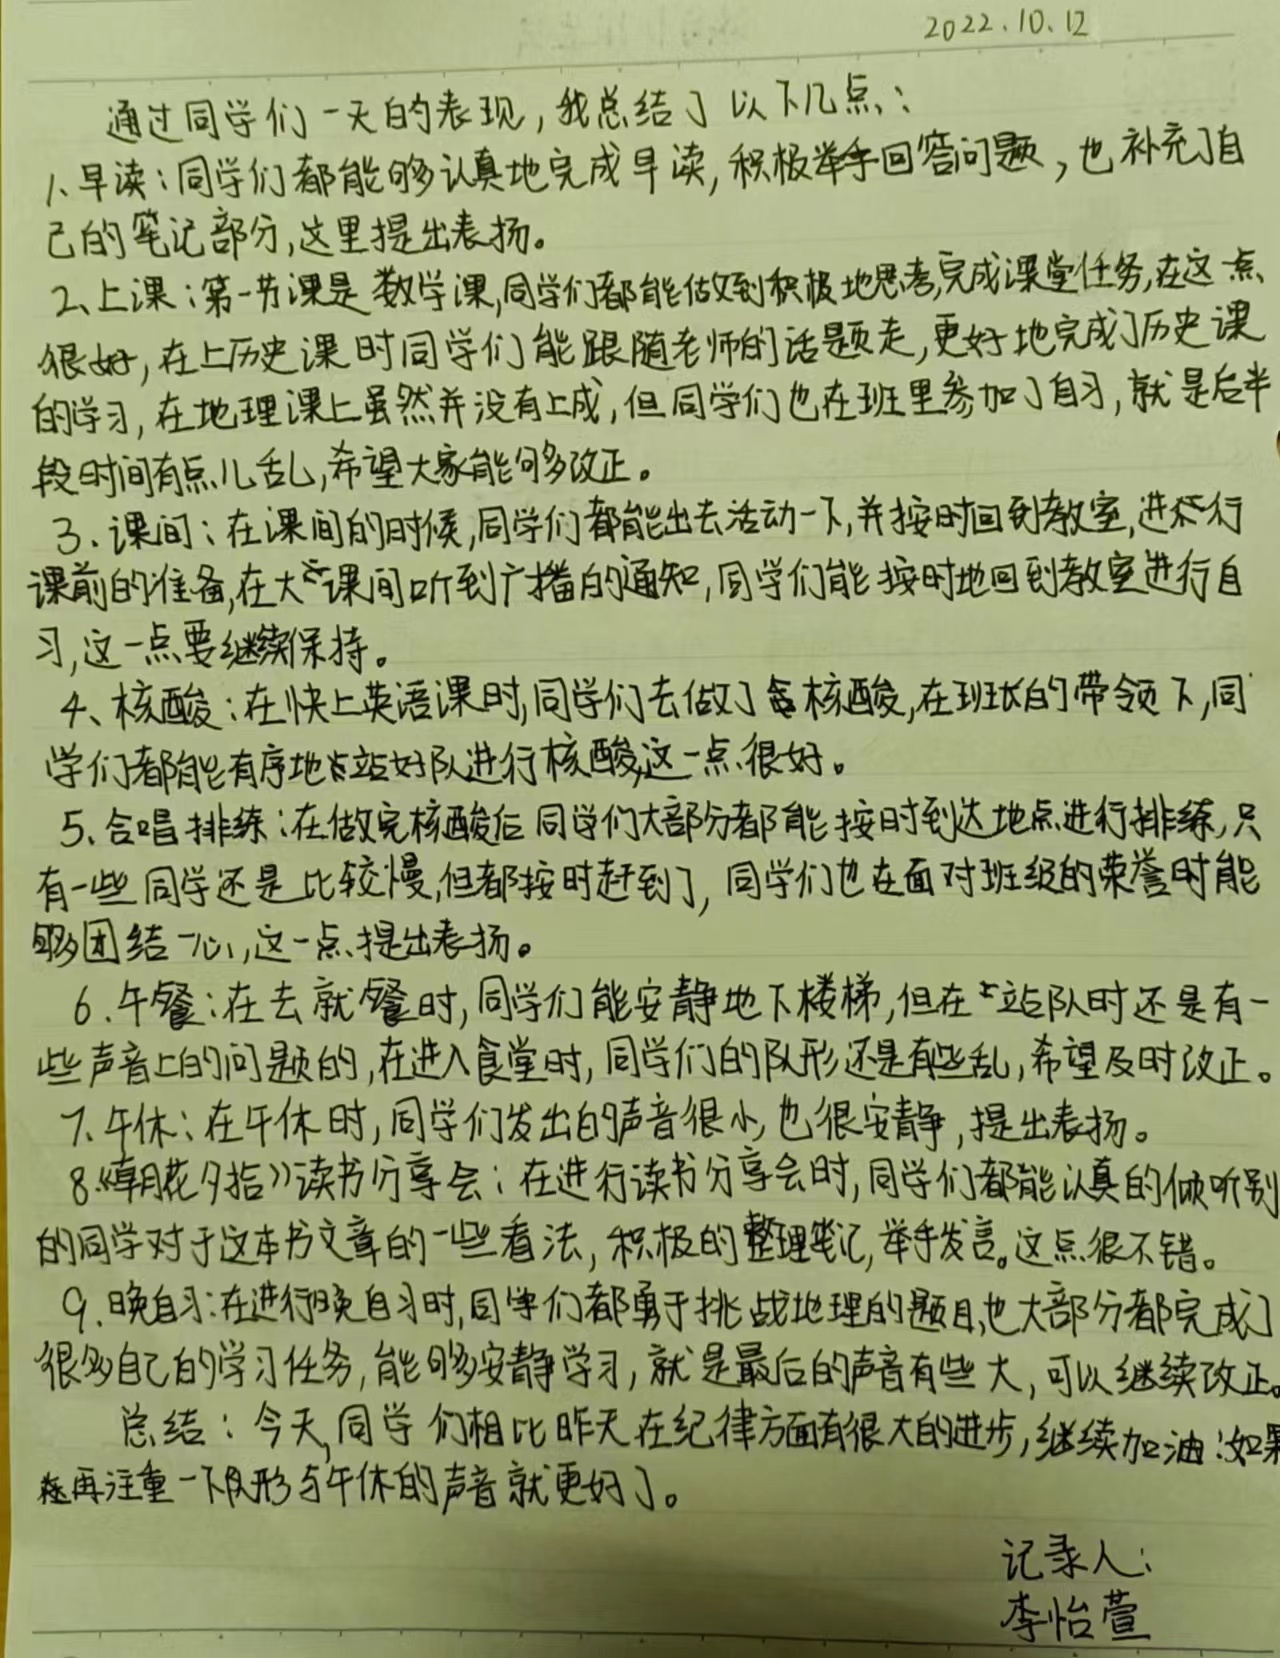 2022.10.12
通过同学们一天的表现，我总结了以下几点：
1、早读：同学们都能够认真地完成早读，积极举手回答问题，也补充了自
己的笔记部分，这里提出表扬。
2、上课：第一节课是数学课，同学们都能做到积极地思考，完成课堂任务，在这一点
很好，在上历史课时同学们能跟随老师的话题走，更好地完成了历史课
的学习，在地理课上虽然并没有上成，但同学们也在班里参加了自习，就是后半
段时间有点儿乱，希望大家能够改正。
3、课间：在课间的时候，同学们都能出去活动一下，并按时回到教室，进行
课前的准备，在大课间听到广播的通知，同学们能按时地回到教室进行自
习，这一点要继续保持。
4、核酸：在快上英语课时，同学们去做了核酸，在班长的带领下，同
学们都能有序地站好队进行核酸，这一点很好。
5、合唱排练：在做完核酸后同学们大部分都能按时到达地点进行排练，只
有一些同学还是比较慢，但都按时赶到了，同学们也在面对班级的荣誉时能
够团结一心，这一点提出表扬。
6、午餐：在去就餐时，同学们能安静地下楼梯，但在站队时还是有一
些声音上的问题的，在进入食堂时，同学们的队形还是有些乱，希望及时改正。
7、午休：在午休时，同学们发出的声音很小，也很安静，提出表扬。
8.《朝花夕拾》读书分享会：在进行读书分享会时，同学们都能认真的倾听别
的同学对于这本书文章的一些看法，积极的整理笔记，举手发言。这点很不错。
9、晚自习：在进行晚自习时，同学们都勇于挑战地理的题目，也大部分都完成了
很多自己的学习任务，能够安静学习，就是最后的声音有些大，可以继续改正。
总结：今天，同学们相比昨天在纪律方面有很大的进步，继续加油！如果
再注重一下队形与午休的声音就更好了。
记录人：
李怡萱